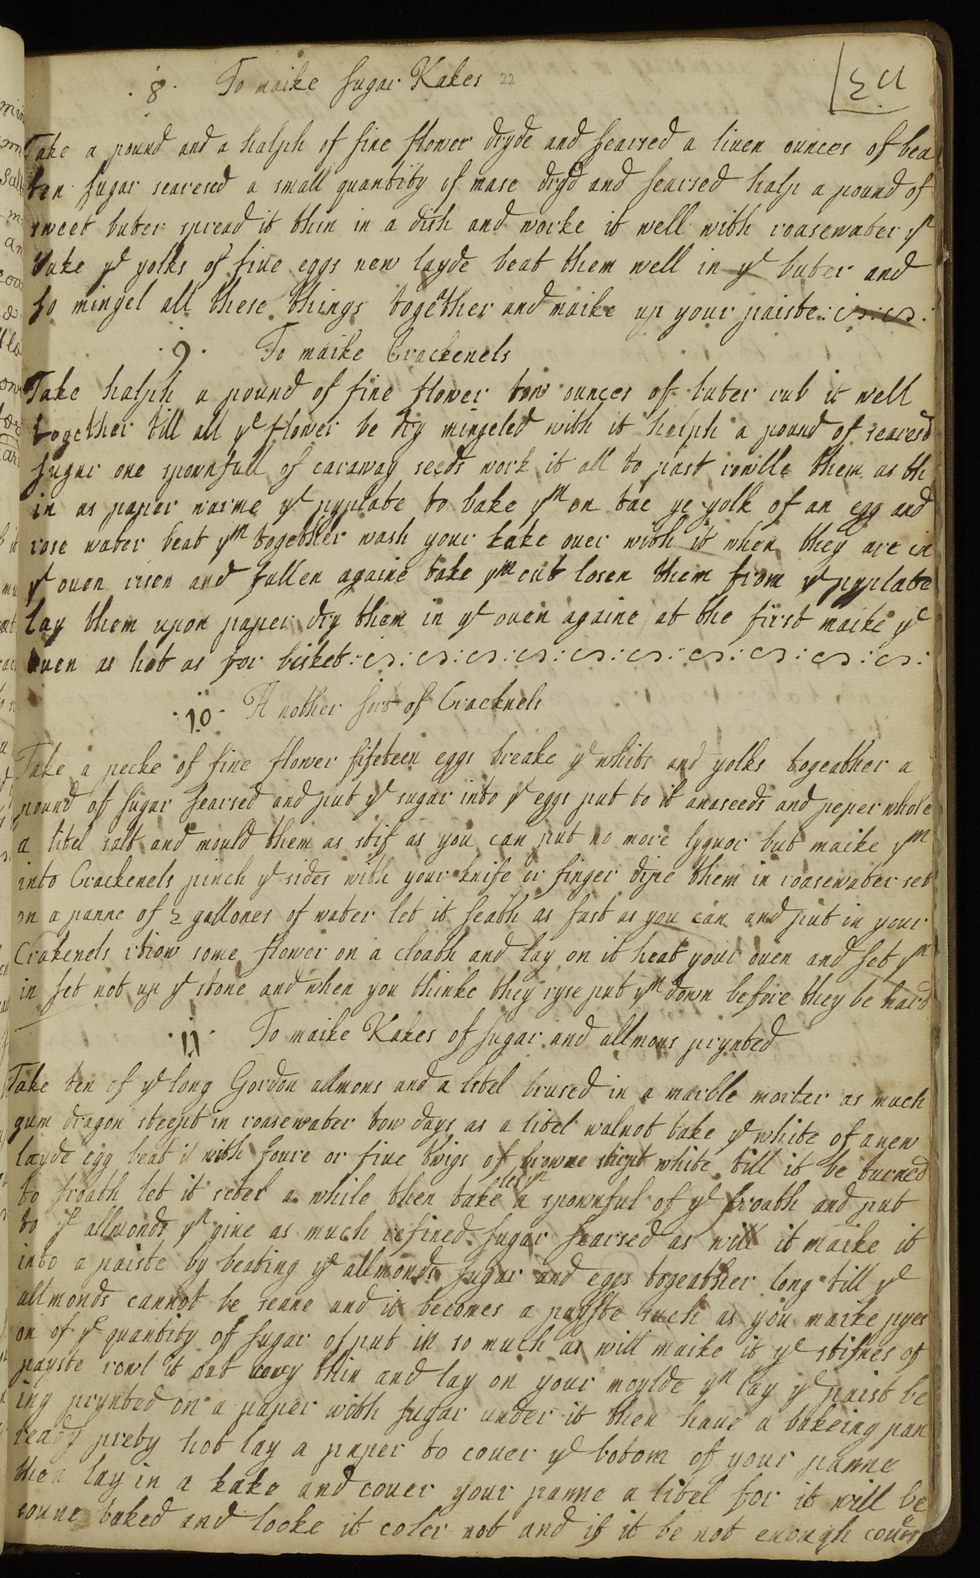 .8. To maike sugar Kakes 22
Take a pound and a halph of fine flower dryde and searsed a liven ounces of bea
ten sugar searesed a small quantity of mase dryd and searsed halp a pound of
sweet buter spread it thin in a dish and worke it well with roasewater yn
take ye yolks of five eggs new layde beat them well in ye buter and
so mingel all these things together and maike up your paiste
9. To maike Crackenels
Take halph a pound of fine flower tow ounces of buter rub it well
together till all ye flower be dry mingeled with it halph a pound of searesd
sugar one spownfull of caraway seeds work it all to past rowlle them as th
in as paper warme ye pyplate to bake ym on tae ye yolk of an egg and
rose water beat ym together wash your kake over with it when they are in
ye oven risen and fallen againe take ym cut losen them from ye pyplate
lay them upon paper dry them in ye oven againe at the first maike ye
oven as hot as for bisket
.10. A nother sort of Cracknels
Take a pecke of fine flower fifeteen eggs breake ye whits and yolks togeather a
pound of sugar searsed and put ye sugar into ye eggs put to it anaseeds and peper whole
a litel salt and mould them as stif as you can put no more lyquor but maike ym
into Crackenels pinch ye sides with your knife or finger dipe them in roasewater set
on a panne of 2 gallones of water let it seath as fast as you can and put in your
Crakenels strow some flower on a cloath and lay on it heat your oven and set ym
in set not up ye stone and when you thinke they ryse put ym down before they be hard
.11. To maike Kakes of sugar and allmons prynted
Take ten of ye long Gordon allmons and a litel brused in a marble morter as much
gum dragon steept in roasewater tow days as a litel walnot take ye white of a new
layde egg beat it with foure or five twigs of browne stript white till it be turned
to froath let it setel a while then take a spownful of ye froath and put
to ye allmonds yn give as much refined sugar searsed as will it maike it
into a paiste by beating ye allmonds sugar and eggs togeather long till ye
allmonds cannot be seane and it becomes a payste such as you maike pyes
on of ye quantity of sugar put in so much as will maike it ye stifnes of
payste rowl it out very thin and lay on your moylde yn lay ye paist be
ing prynted on a paper with sugar under it then have a bakeing pan
ready prety hot lay a paper to cover ye botom of your panne
then lay in a kake and cover your panne a litel for it will be
soune baked and looke it coler not and if it be not enough cover